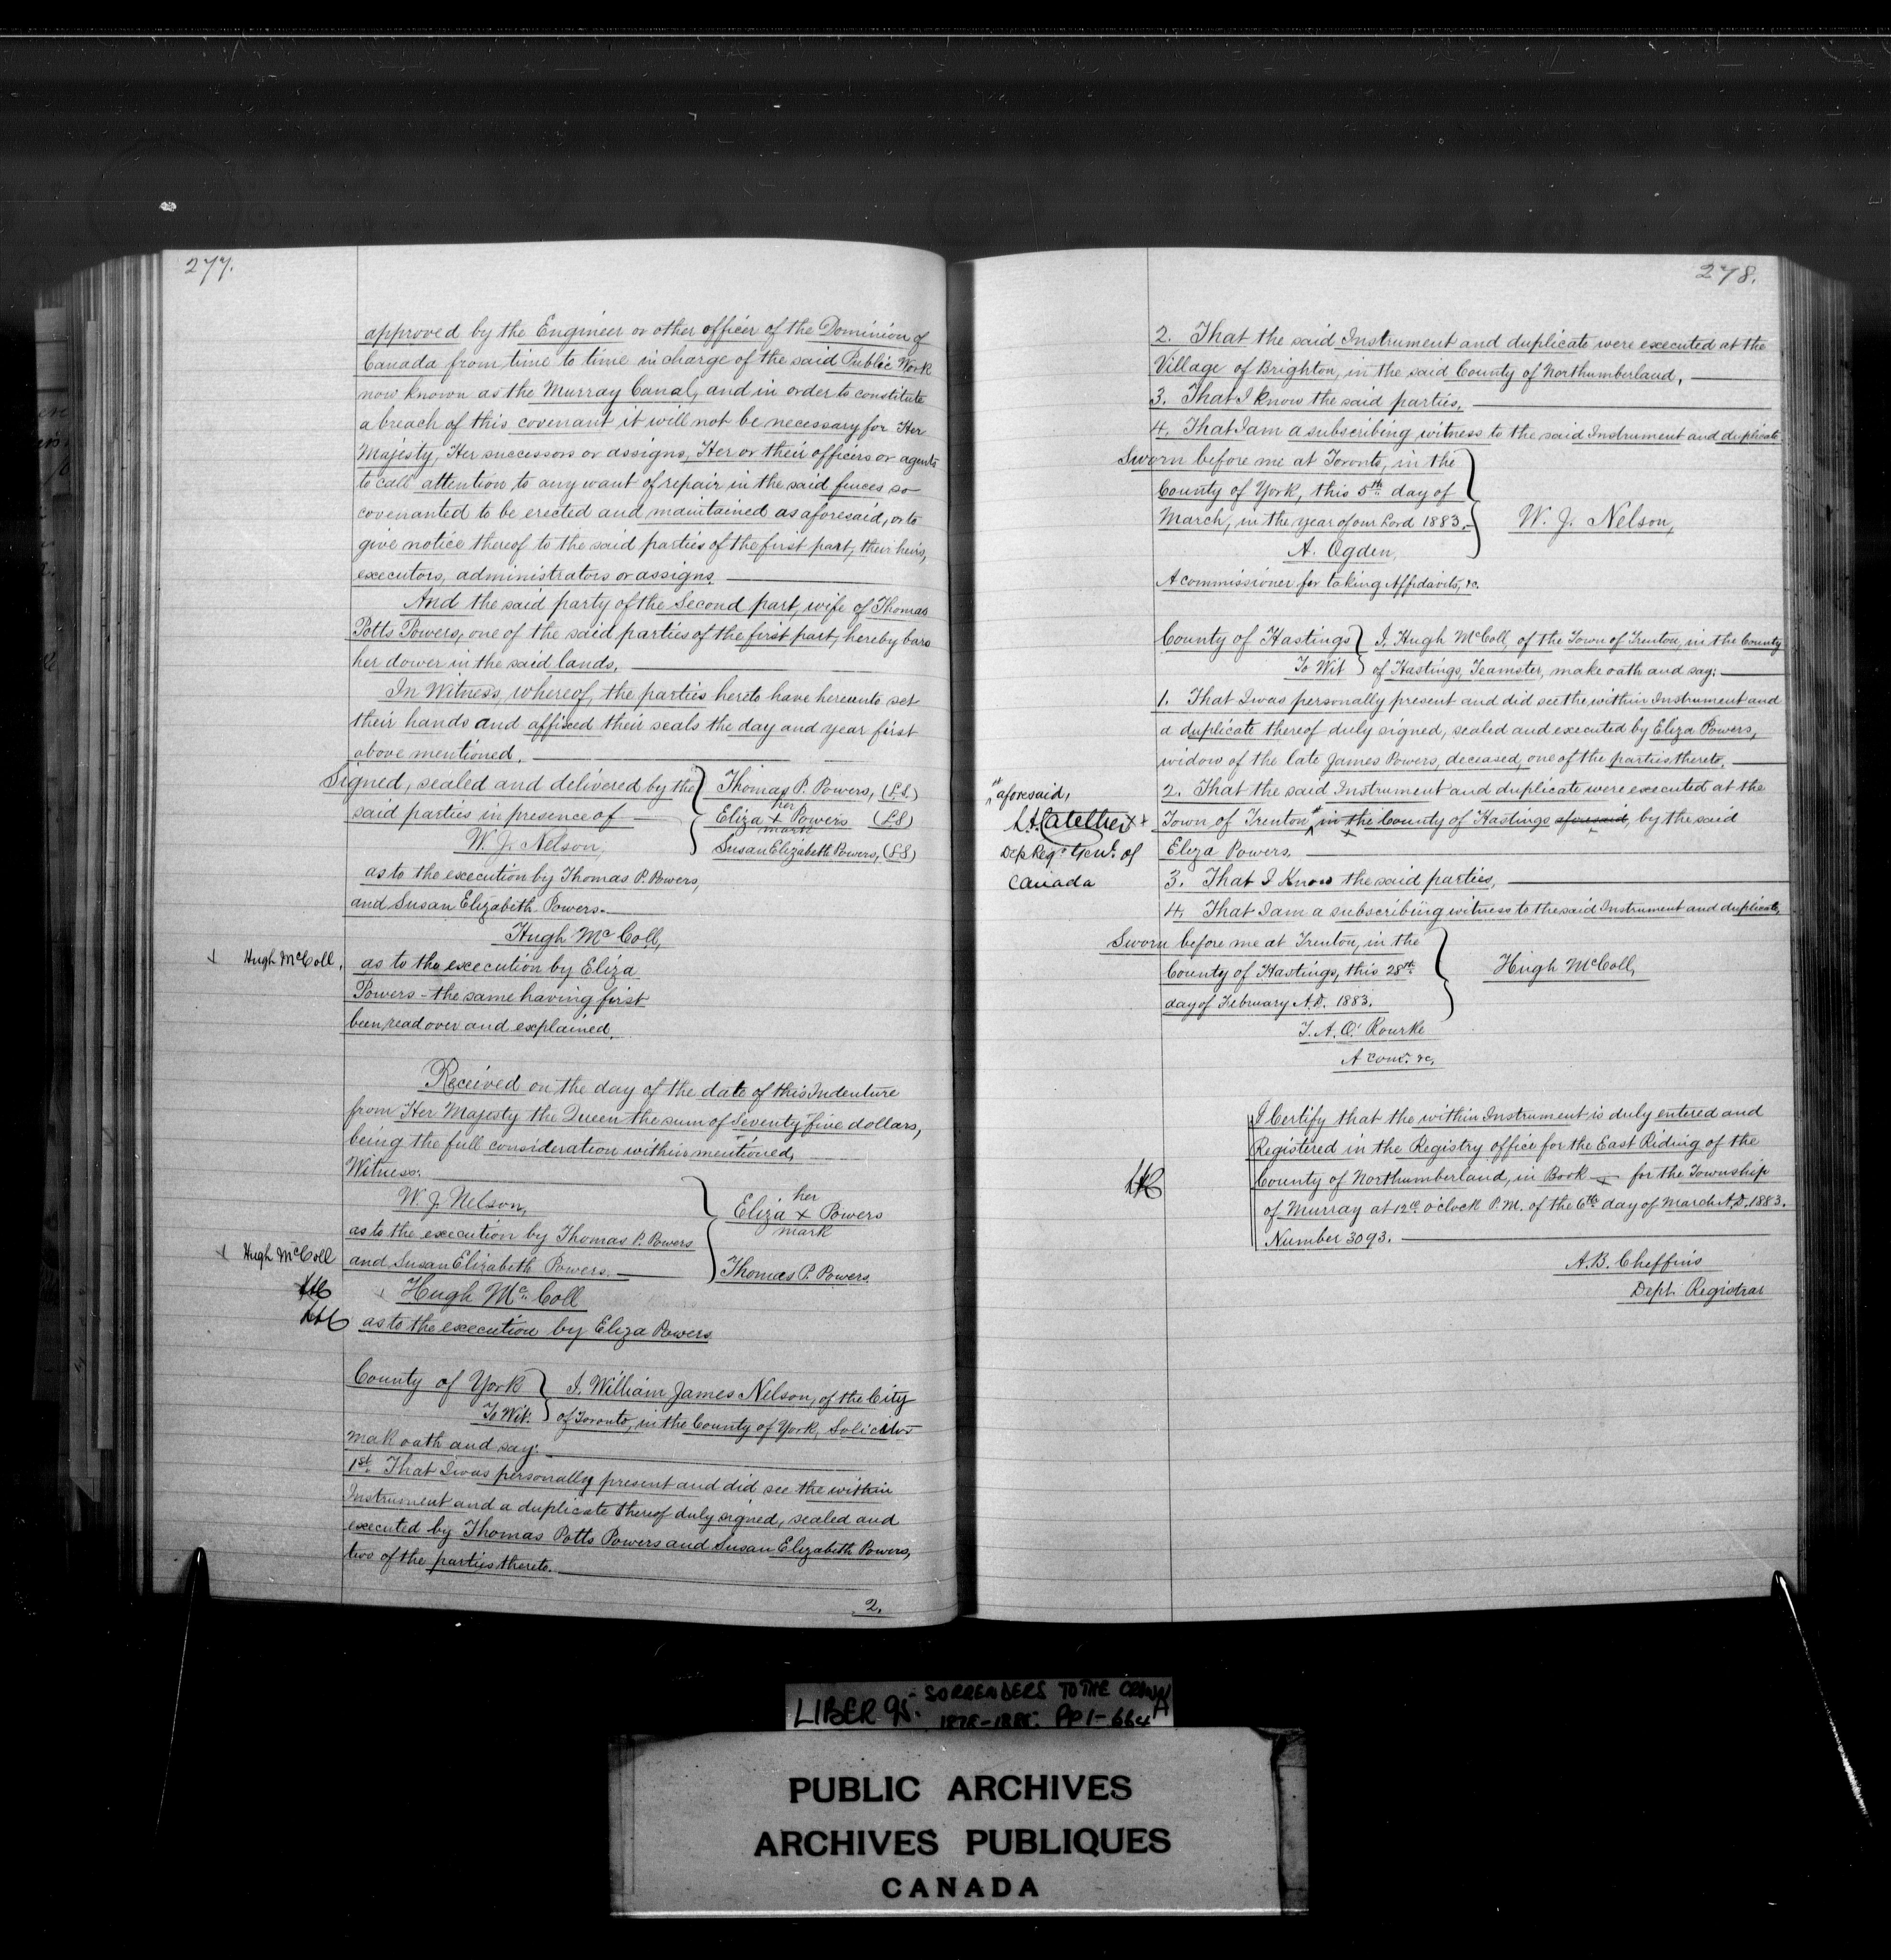 277.
approved by the Engineer or other officer of the Dominion of
Canada from time to time in charge of the said Public Work
now known as the Murray Canal, and in order to constitute
a breach of this covenant it will not be necessary for Her
Majesty, Her successors or assigns, Her or their officers or agents
to call attention to any want of repair in the said fences so
covenanted to be erected and maintained as aforesaid, or to
give notice thereof to the said parties of the first part, their heirs,
executors, administrators or assigns.
And the said party of the Second part, wife of Thomas
Potts Powers, one of the said parties of the first part, hereby bars
her dower in the said lands.
In Witness whereof, the parties hereto have hereunto set
their hands and affixed their seals the day and year first
above mentioned.
Signed, sealed and delivered by the
said parties in presence of
W. J. Nelson,
as to the execution by Thomas P. Powers,
and Susan Elizabeth Powers.
Thomas P. Powers, (L.S.)
her
Eliza + Powers (L.S)
mark
Susan Elizabeth Powers, (L.S)
Hugh Mc Coll,
Hugh McColl,
as to the execution by Eliza
Powers - the same having first
been read over and explained.
Received on the day of the date of this Indenture
from Her Majesty the Queen the sum of Seventy five dollars,
being the full consideration within mentioned.
Witness:
W. J. Nelson,
as to the execution by Thomas P. Powers
and Susan Elizabeth Powers.
her
Eliza + Powers
mark
Thomas P. Powers
Hugh McColl
Hugh Mc Coll
as to the execution by Eliza Powers
County of York
To Wit.
I, William James Nelson, of the City
of Toronto, in the County of York, Solicitor
mak oath and say:
1st. That I was personally present and did see the within
Instrument and a duplicate thereof duly signed, sealed and
executed by Thomas Potts Powers and Susan Elizabeth Powers,
two of the parties thereto.
2.
278.
2. That the said Instrument and duplicate were executed at the
Village of Brighton, in the said County of Northumberland.
3. That I know the said parties.
4. That I am a subscribing witness to the said Instrument and duplicate
Sworn before me at Toronto, in the
County of York, this 5th day of
March, in the year of our Lord 1883.
W. J. Nelson,
A. Ogden,
A commissioner for taking Affidavits, &c.
County of Hastings
To Wit
I, Hugh McColl, of the Town of Trenton, in the County
of Hastings, Teamster, make oath and say:
1. That I was personally present and did see the within Instrument and
a duplicate thereof duly signed, sealed and executed by Eliza Powers,
widow of the late James Powers, deceased, one of the parties thereto.
2. That the said Instrument and duplicate were executed at the
aforesaid,
Dep Regr Genl. of
Canada
Town of Trenton in the County of Hastings aforesaid, by the said
Eliza Powers.
3. That I know the said parties,
4. That I am a subscribing witness to the said Instrument and duplicate,
Sworn before me at Trenton, in the
County of Hastings, this 28th
day of February A.D. 1883.
Hugh McColl,
T. A. O'Rourke
A Comr. &c,
I Certify that the within Instrument is duly entered and
Registered in the Registry office for the East Riding of the
County of Northumberland, in Book for the Township
of Murray at 12 o'clock P.M. of the 6th day of March A.D. 1883.
Number 3093.
A. B. Cheffins
Dept. Registrar
LIBER 95. SORRENDERS TO THE CROWN
1878-1885. PP 1-664 A
PUBLIC ARCHIVES
ARCHIVES PUBLIQUES
CANADA